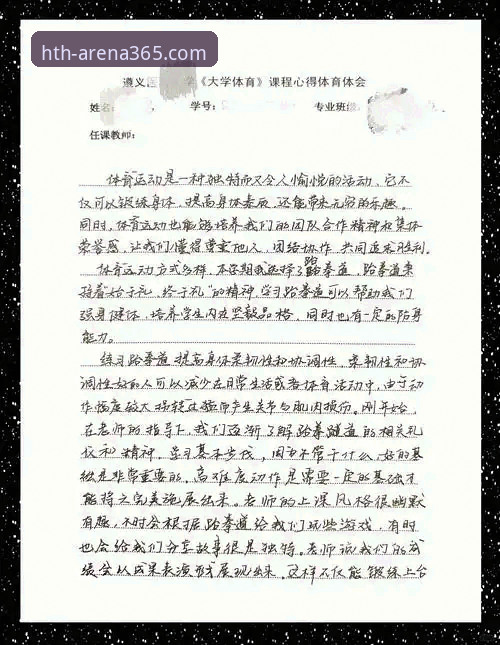 hth-arena365.com
遵义医 学《大学体育》课程心得体育体会
姓名: 学号: 专业班级:
任课教师:
体育运动是一种独特而又令人愉悦的活动,它不
仅可以锻练身体,提高身体素质,还能带来无穷的乐趣。
同时,体育运动也能够培养我们的团队合作精神和集体
荣誉感,让我们懂得尊重他人,团结协作,共同追求胜利。
体育运动方式多样,本学期我选择了跆拳道,跆拳道秉
持着“始于礼,终于礼”的精神,学习跆拳道可以帮助我们
强身健体,培养学生内在坚毅品格,同时也有一定的防身
能力。
练习跆拳道,提高身体柔韧性和协调性,柔韧性和协
调性好的人可以减少在日常生活或者体育活动中,由于动
作幅度较大,扭转过猛而产生关节与肌肉损伤。刚开始,
在老师的指导下,我们逐渐了解跆拳道的相关礼
仪和精神,学习基本步伐,因为不管干什么,好的基
础是非常重要的,高难度动作是需要一定的基础才
能将之完美施展出来。老师的上课风格很幽默
有趣,不时会根据跆拳道给我们玩些游戏,有时
也会给我们分享故事很是独特。老师说我们的成
绩会以成果表演形式展现出来,这样不仅能锻练上台